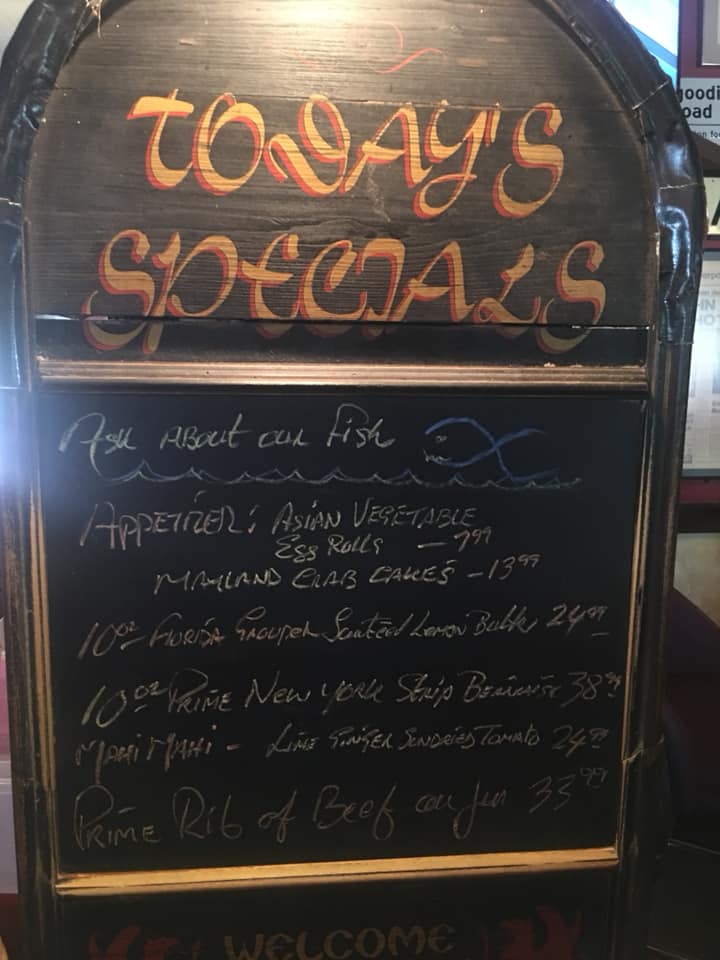 TODAY'S
SPECIALS
Ask ABOUT our Fish
APPETIZER: ASIAN VEGETABLE
Egg Rolls — 7.99
MARYLAND CRAB CAKES - 13.99
10oz FLORIDA GROUPER Sauteed Lemon Butter 24.99
10oz PRIME NEW YORK Strip Bernaise 38.99
MAHI MAHI - LIME GINGER SUNDRIED TOMATO 24.99
PRIME Rib of Beef au Jus 33.99
WELCOME